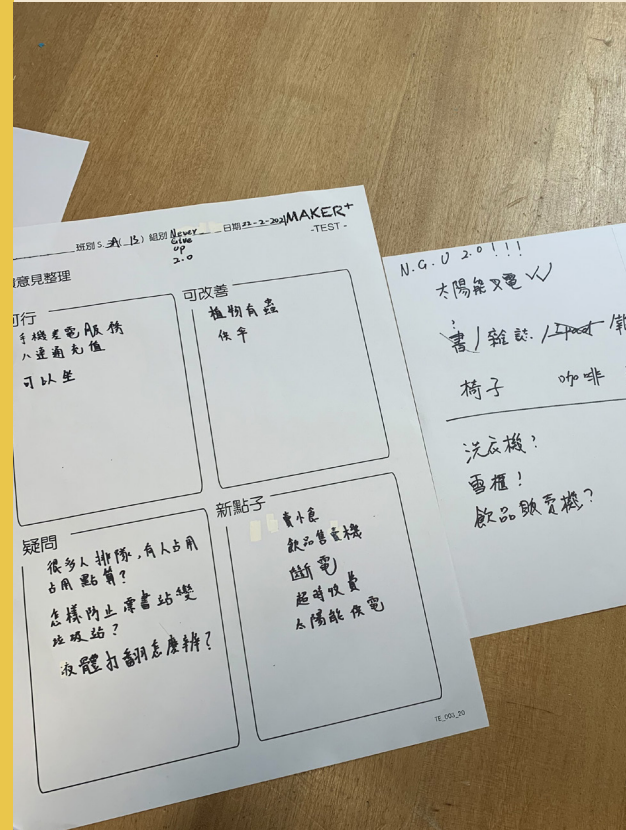 班別 S. 3A( B ) 組別 Never Give up 2.0 日期 22-2-2021 MAKER+
-TEST-
意見整理
可行
手機差電
八達通充值
可以坐
可改善
植物有蟲
疑問
很多人排隊,有人占用
占用點算?
怎樣防止漂書站變
垃圾站?
液體打翻怎麼辦?
新點子
賣小食
飲品售賣機
斷電
超時收費
太陽能供電
TE_003_20
N.G.U 2.0!!!
太陽能叉電
?
書/雜誌/
椅子 咖啡
洗衣機?
雪櫃!
飲品販賣機?